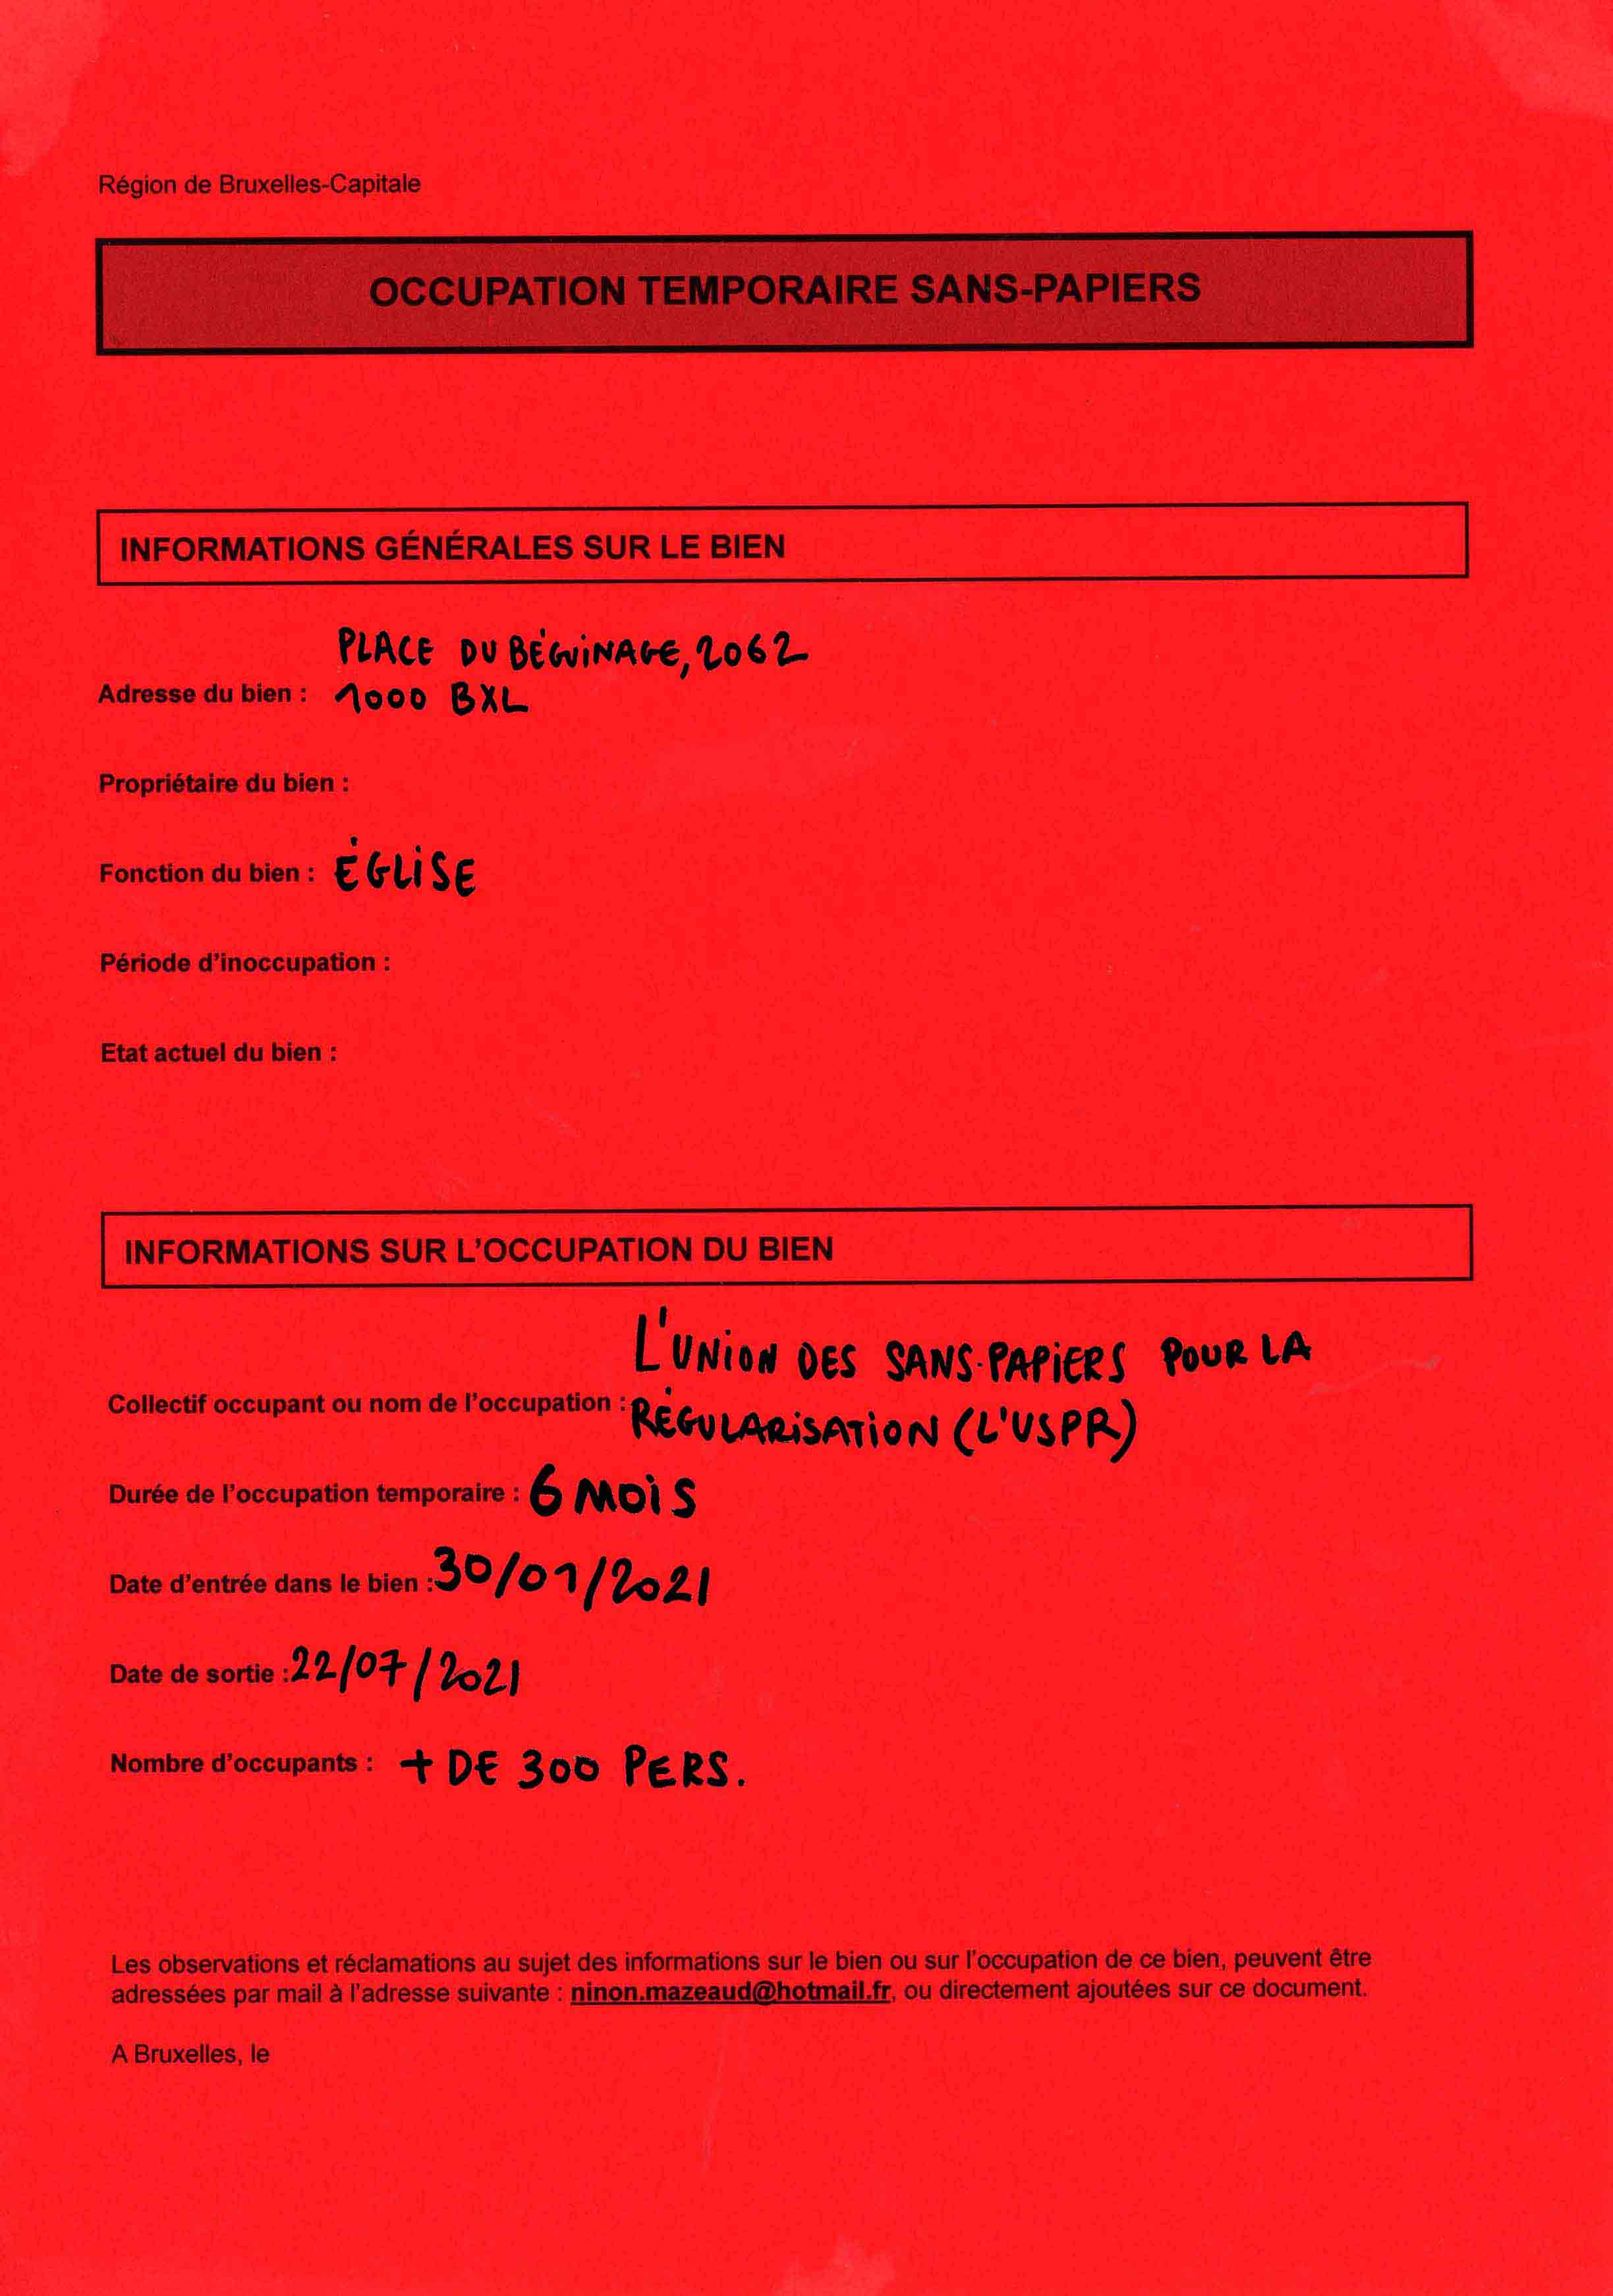 Région de Bruxelles-Capitale
OCCUPATION TEMPORAIRE SANS-PAPIERS
INFORMATIONS GÉNÉRALES SUR LE BIEN
PLACE DU BÉGUINAGE, 2062
Adresse du bien : 1000 BXL
Propriétaire du bien :
Fonction du bien : ÉGLISE
Période d'inoccupation :
Etat actuel du bien :
INFORMATIONS SUR L'OCCUPATION DU BIEN
L'UNION DES SANS-PAPIERS POUR LA
Collectif occupant ou nom de l'occupation : RÉGULARISATION (L'USPR)
Durée de l'occupation temporaire : 6 MOIS
Date d'entrée dans le bien : 30/01/2021
Date de sortie : 22/07/2021
Nombre d'occupants : + DE 300 PERS.
Les observations et réclamations au sujet des informations sur le bien ou sur l'occupation de ce bien, peuvent être
adressées par mail à l'adresse suivante : ninon.mazeaud@hotmail.fr, ou directement ajoutées sur ce document.
A Bruxelles, le